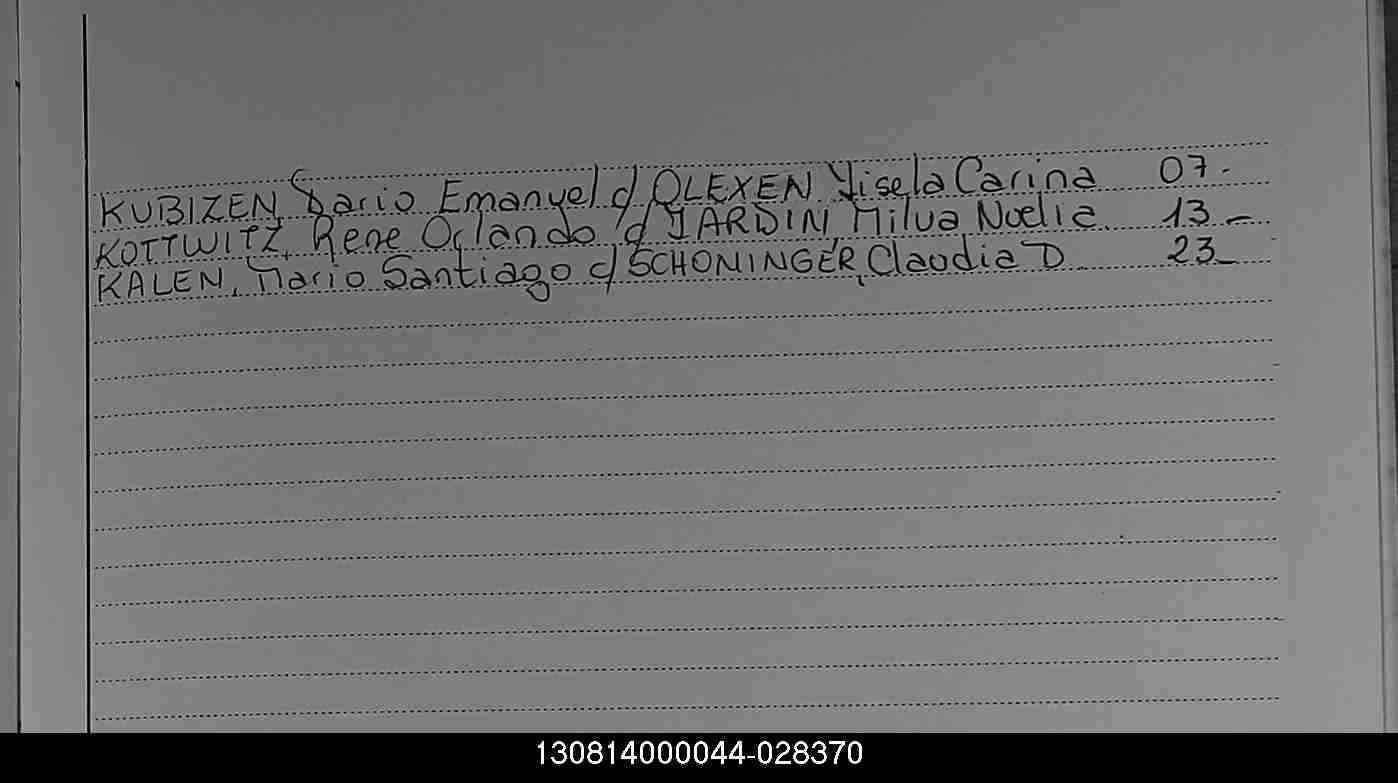 KUBIZEN, Dario Emanuel c/ OLEXEN Yisela Carina 07.
KOTTWITZ, Rene Orlando c/ JARDIN, Milva Noelia 13-
KALEN, Mario Santiago c/ SCHONINGER, Claudia D 23-
130814000044-028370